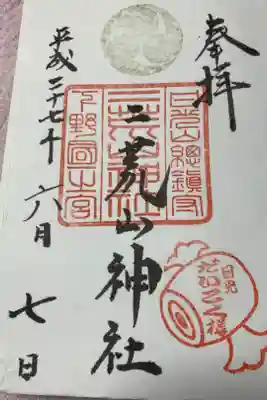 奉拝
日光山總鎮守
二荒山神社
下野國一之宮
二荒山神社
平成二十七年 六月 七日
日光
だいこく様